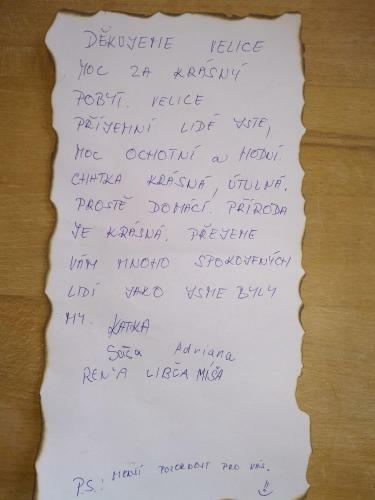 DĚKUJEME VELICE
MOC ZA KRÁSNÝ
POBYT. VELICE
PŘÍJEMNÍ LIDÉ JSTE,
MOC OCHOTNÍ a HODNÍ.
CHATKA KRÁSNÁ, ÚTULNÁ.
PROSTĚ DOMÁCÍ. PŘÍRODA
JE KRÁSNÁ. PŘEJEME
VÁM MNOHO SPOKOJENÝCH
LIDÍ JAKO JSME BYLY
MY. KATKA
Sáša Adriana
REN'A LIBČA MÍŠA
P.S.: MENŠÍ POZORNOST PRO VÁS. :)